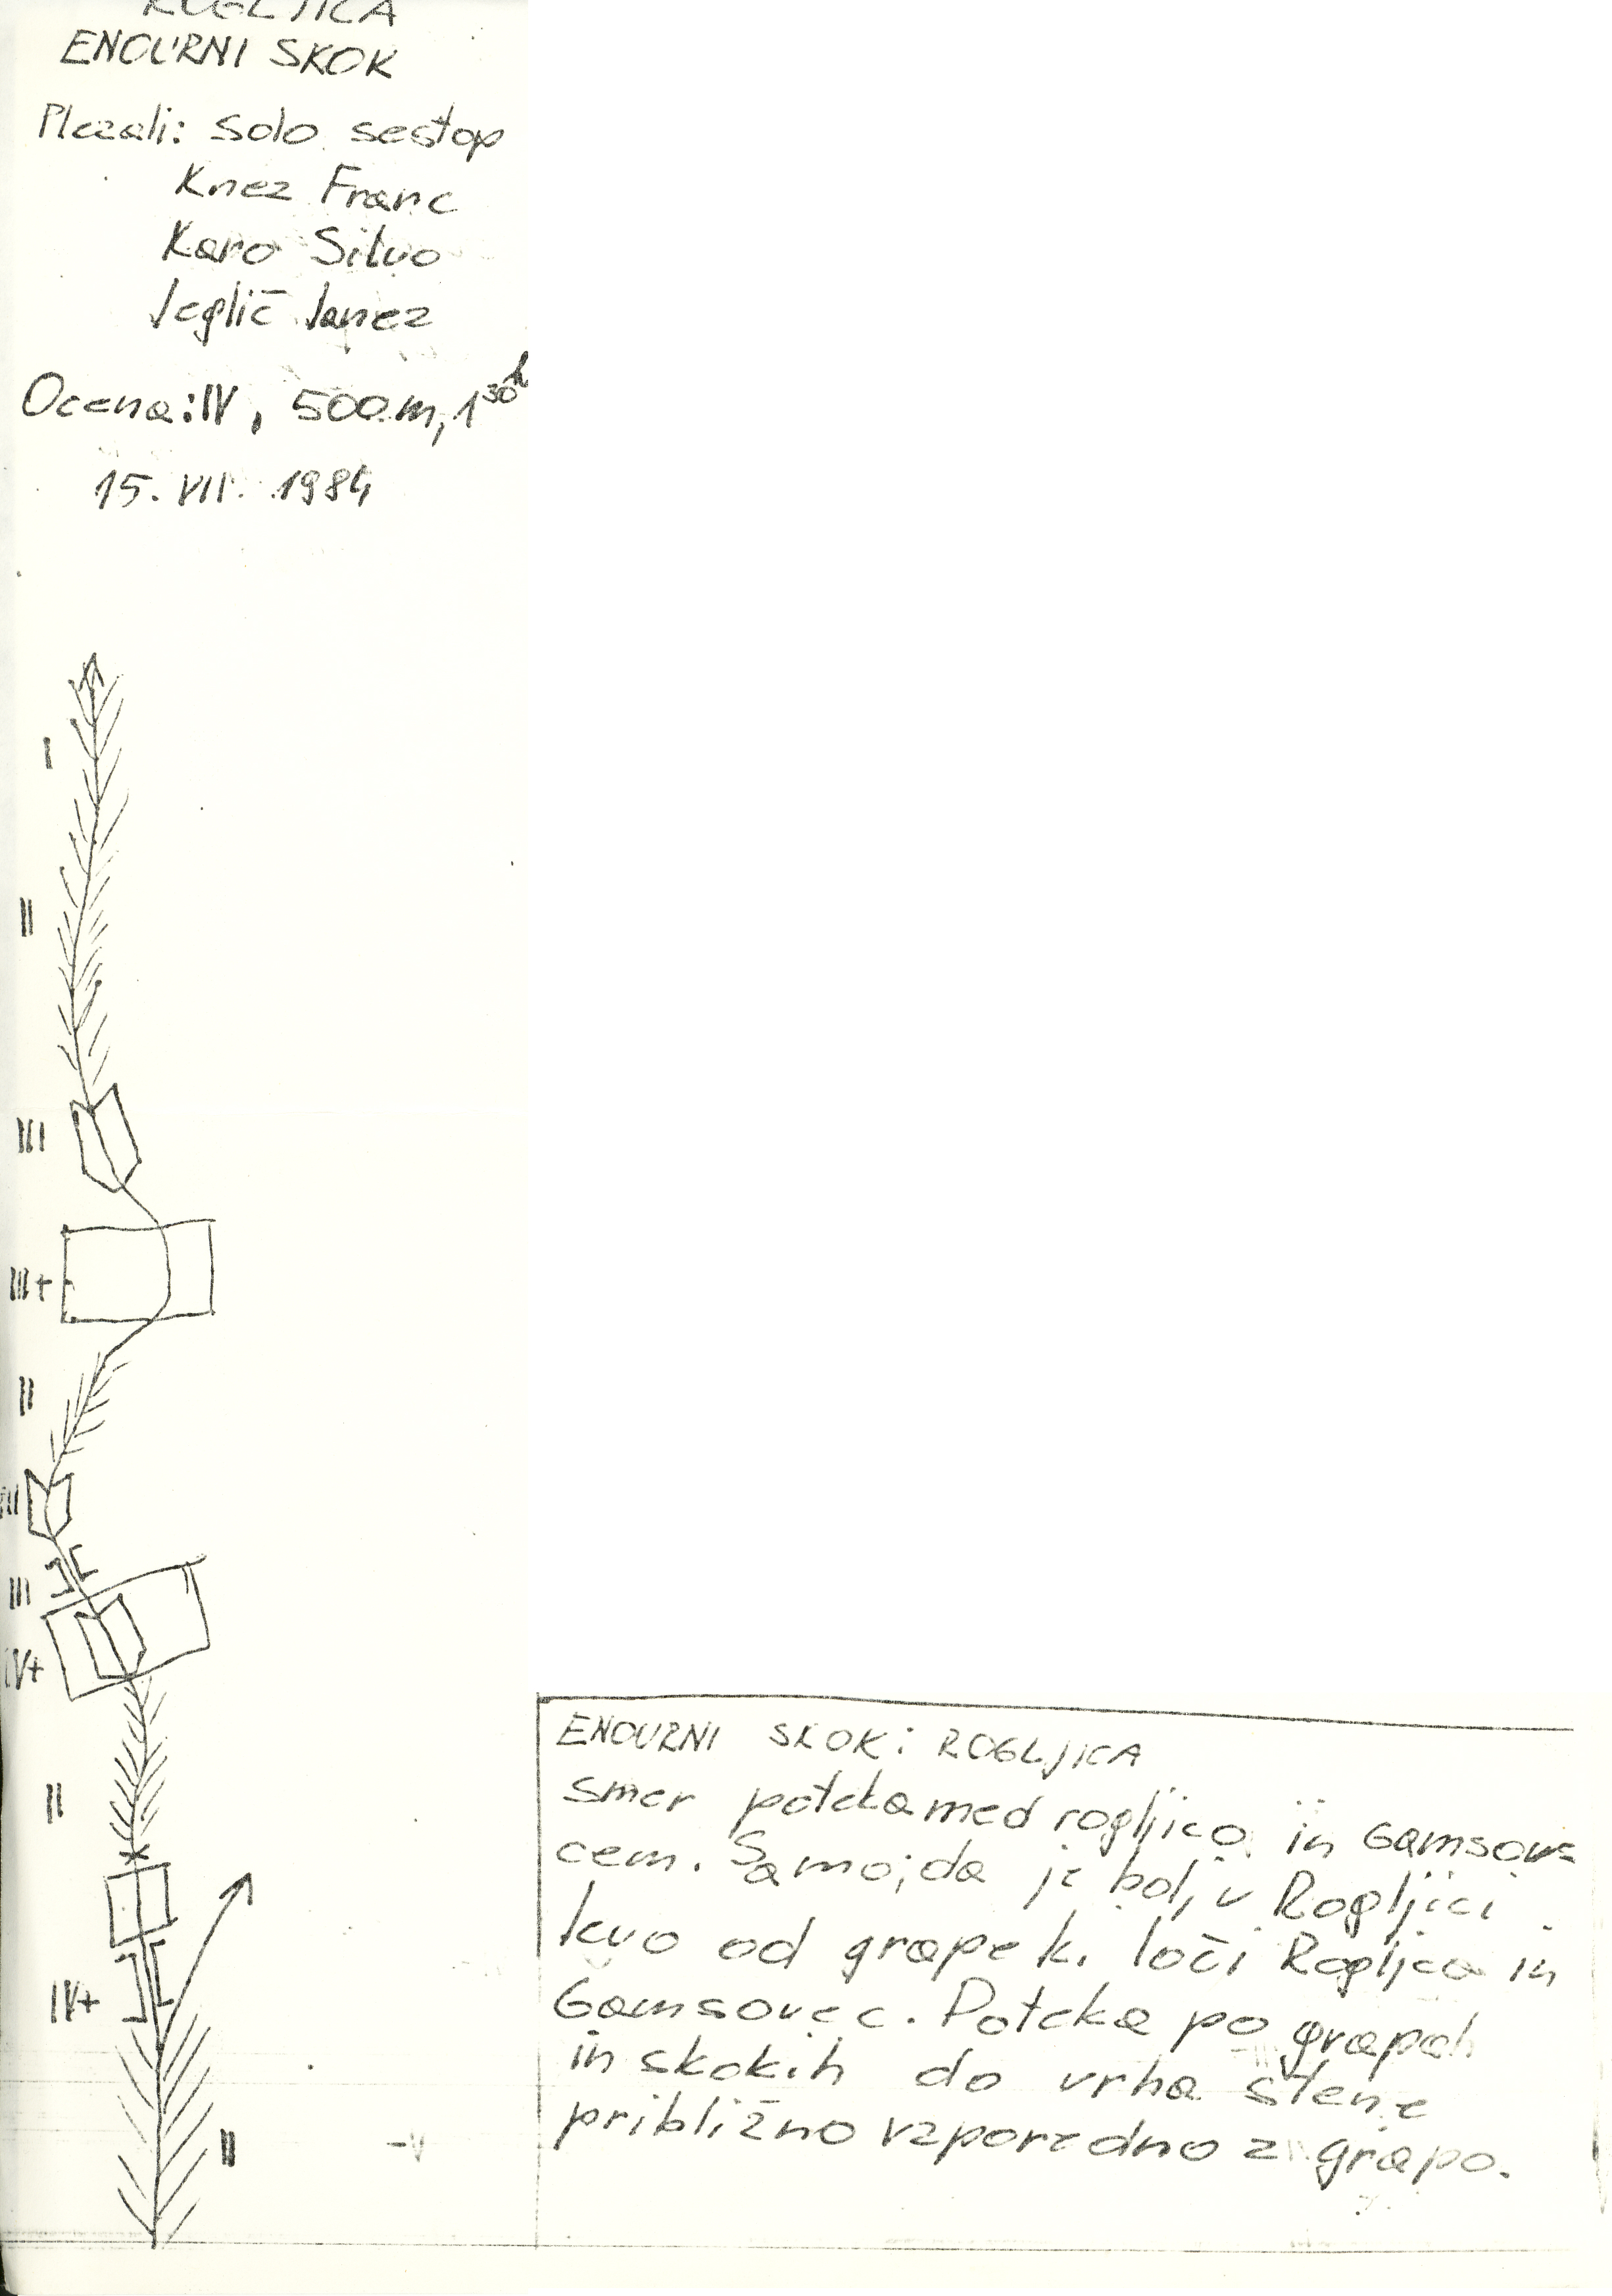 ROGLJICA
ENOURNI SKOK
Plezali: solo sestop
Knez Franc
Karo Silvo
Jeglič Janez
Ocena: IV, 500 m, 1³⁰ h
15. VII. 1984
I
II
III
III+
II
III
III
IV+
II
IV+
II
ENOURNI SKOK: ROGLJICA
smer poteka med rogljico in Gamsov=
cem. Samo, da je bolj v Rogljici
levo od grape ki loči Rogljico in
Gamsovec. Poteka po grapah
in skokih do vrha stene
približno vzporedno z grapo.